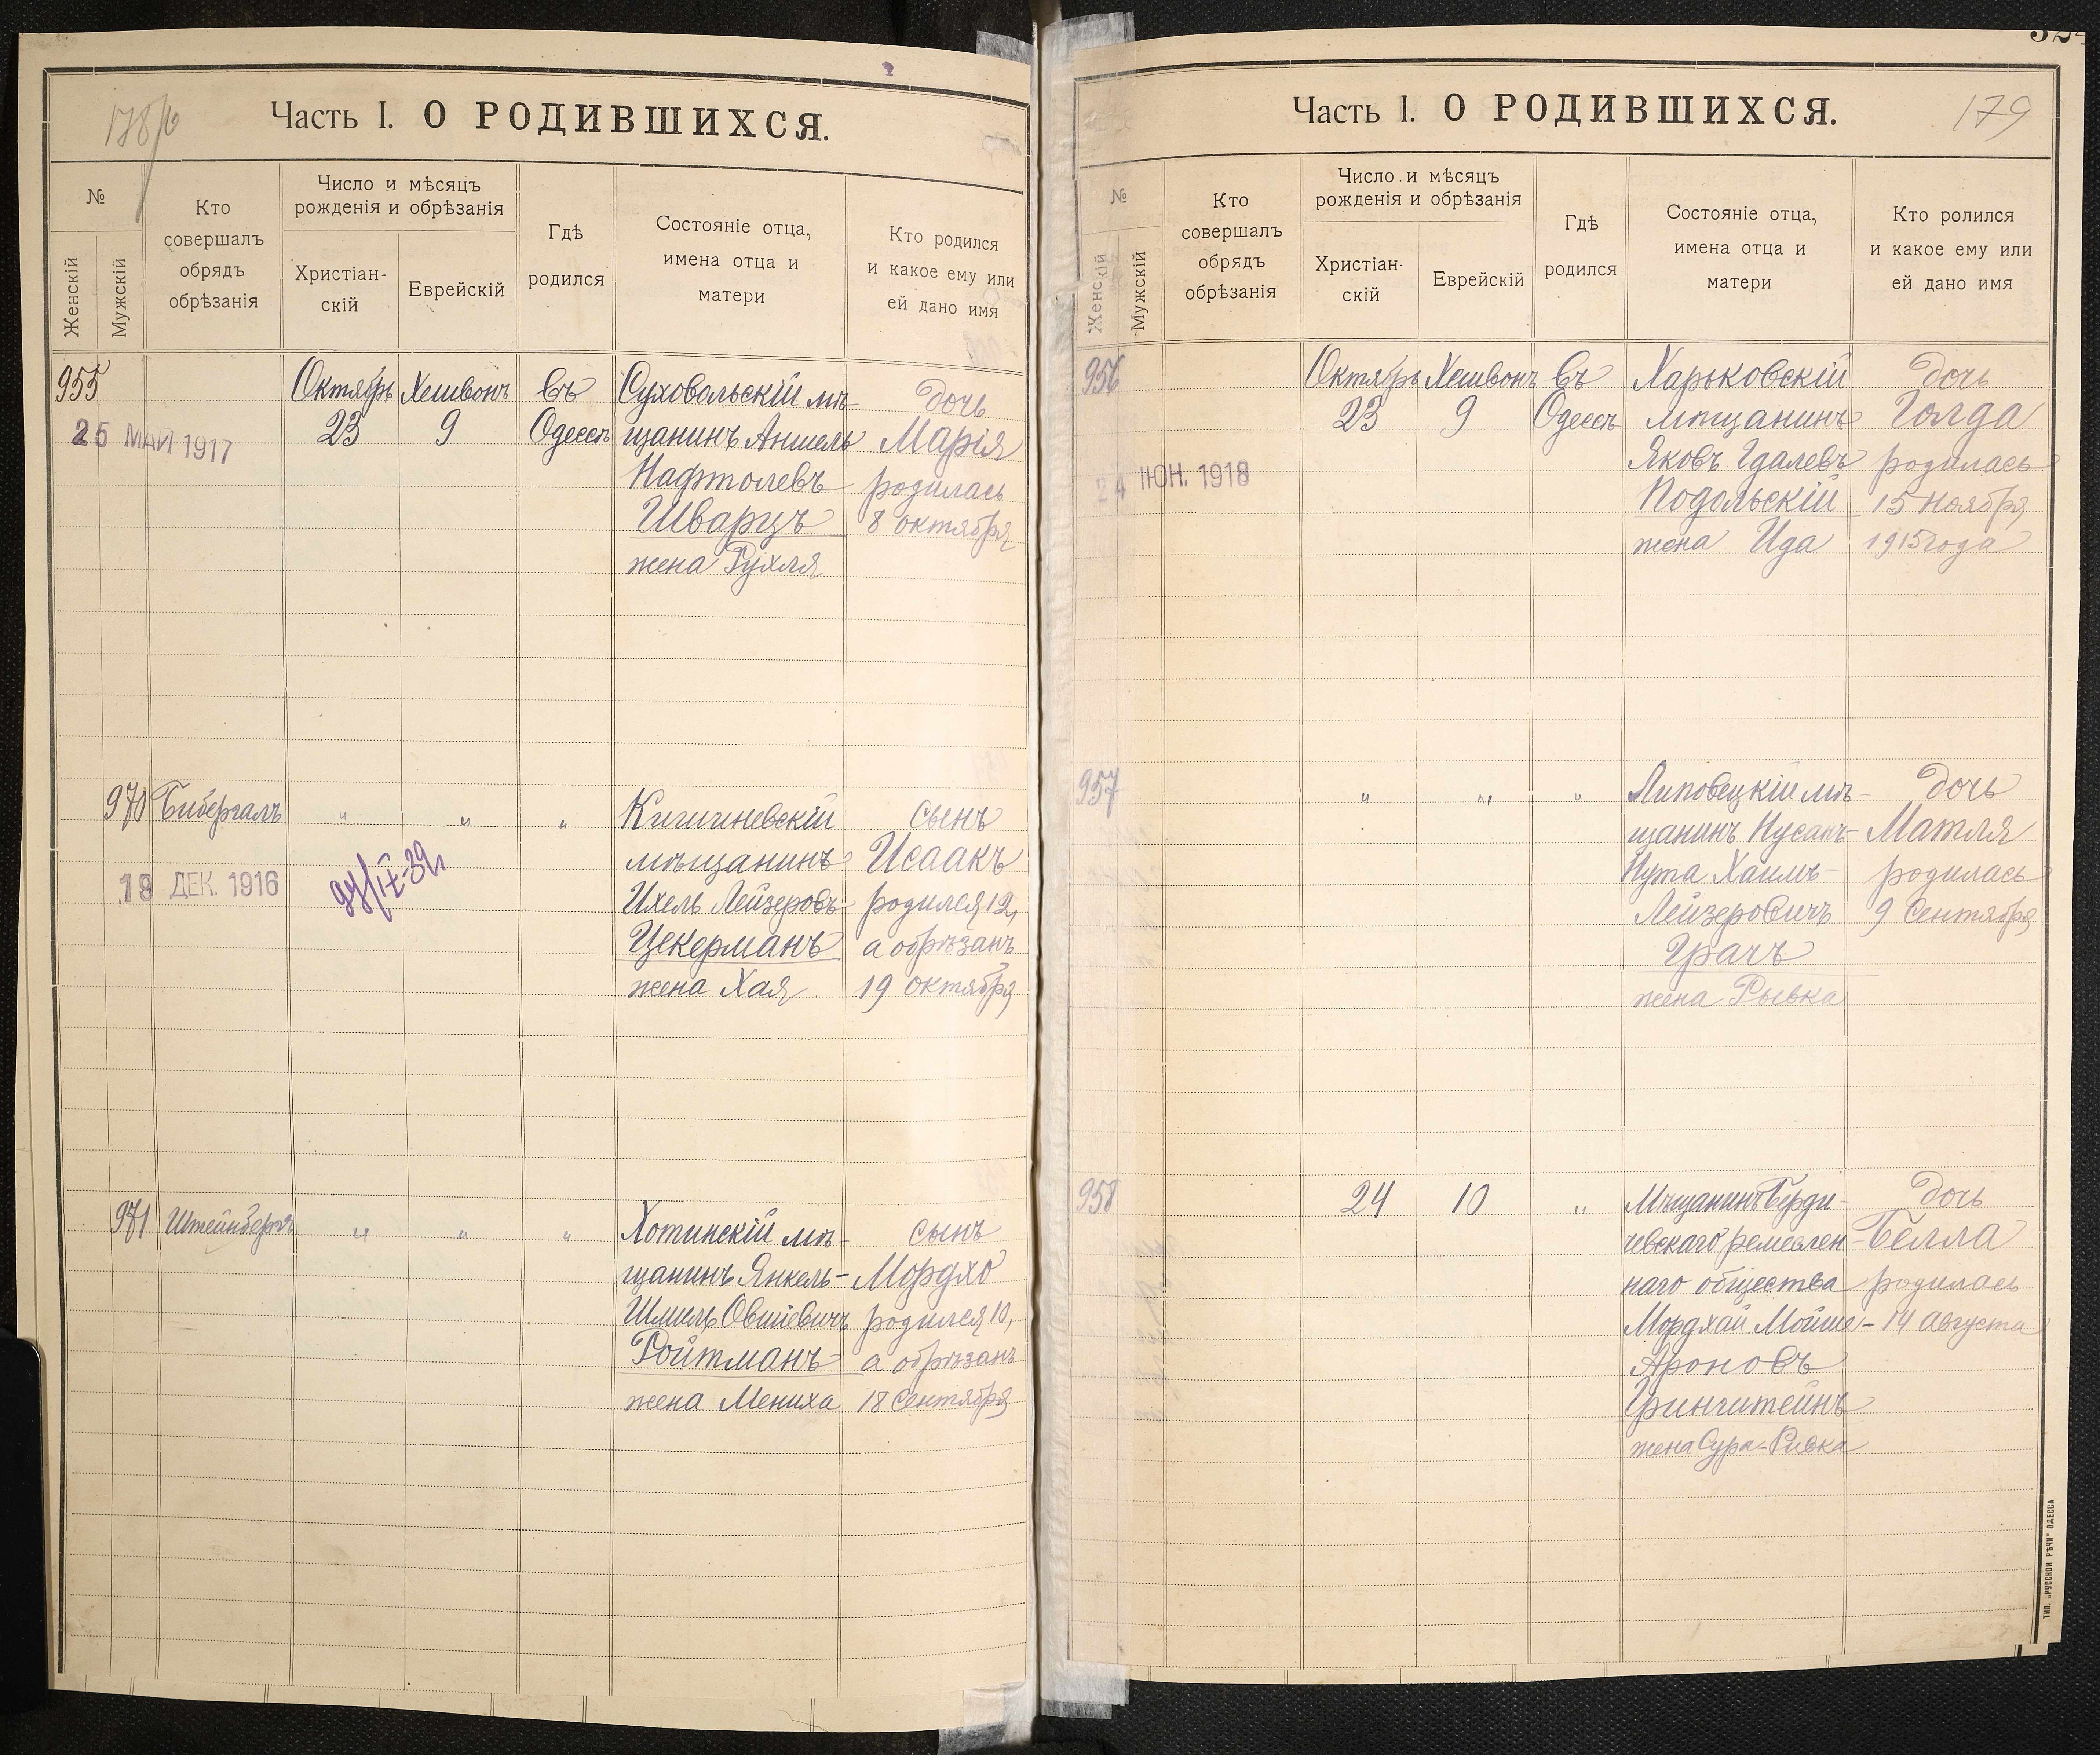 178/б
Часть I. О РОДИВШИХСЯ.
№
Женскій
Мужскій
Кто
совершалъ
обрядъ
обрѣзанія
Число и мѣсяцъ
рожденія и обрѣзанія
Христіан-
скій
Еврейскій
Гдѣ
родился
Состояніе отца,
имена отца и
матери
Кто родился
и какое ему или
ей дано имя
955
25 МАЙ 1917
Октябрь
23
Хешвонъ
9
въ
Одессѣ
Суховольскій мѣ-
щанинъ Аншель
Нафтолевъ
Шварцъ
жена Рухля
дочь
Марія
родилась
8 октября
970
Бибергалъ
18 ДЕК. 1916
"
"
"
Кишиневскій
мѣщанинъ
Ихель Лейзеровъ
Цекерманъ
жена Хая
сынъ
Исаакъ
родился 12,
а обрѣзанъ
19 октября
971
Штейнбергъ
"
"
"
Хотинскій мѣ-
щанинъ Янкель-
Шмиль Овшіевичъ
Ройтманъ
жена Мениха
сынъ
Мордхо
родился 10,
а обрѣзанъ
18 сентября
179
Часть I. О РОДИВШИХСЯ.
№
Женскій
Мужскій
Кто
совершалъ
обрядъ
обрѣзанія
Число и мѣсяцъ
рожденія и обрѣзанія
Христіан-
скій
Еврейскій
Гдѣ
родился
Состояніе отца,
имена отца и
матери
Кто ролился
и какое ему или
ей дано имя
956
24 ІЮН. 1918
Октябрь
23
Хешвонъ
9
въ
Одессѣ
Харьковскій
мѣщанинъ
Яковъ Гдалевъ
Подольскій
жена Ида
дочь
Голда
родилась
15 ноября
1915 года
957
"
"
"
Липовецкій мѣ-
щанинъ Нусанъ-
Нута Хаимъ-
Лейзеровичъ
Грачъ
жена Рывка
дочь
Матля
родилась
9 Сентября
958
24
10
"
Мѣщанинъ Берди-
чевскаго ремеслен-
наго общества
Мордхай Мойше-
Ароновъ
Гринштейнъ
жена Сура-Ривка
дочь
Белла
родилась
14 августа
ТИП. „РУССКОЙ РѢЧИ" ОДЕССА